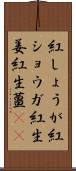 紅しょうが紅
ショウガ紅生
姜紅生薑